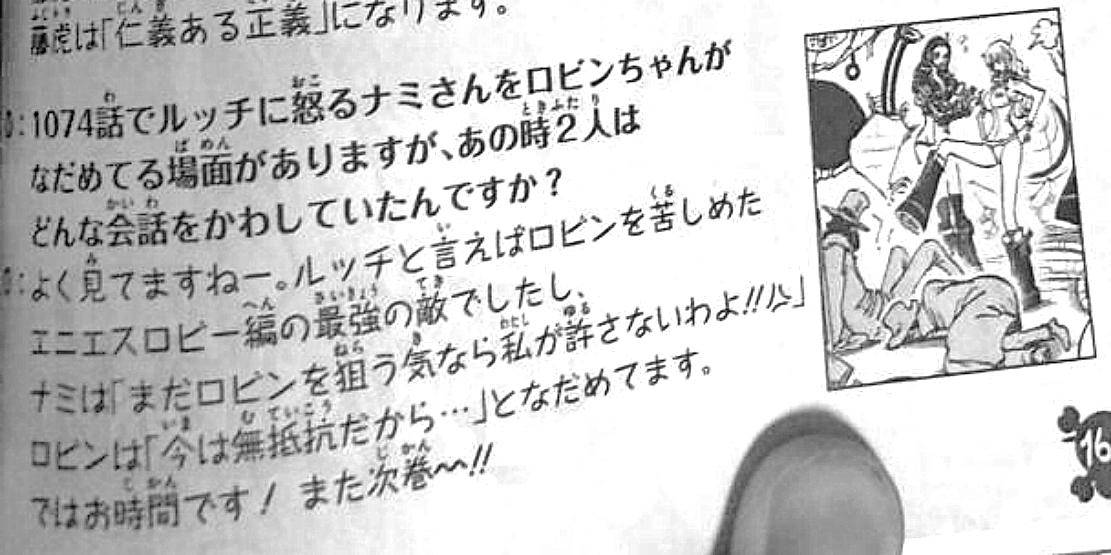 藤虎は「仁義ある正義」になります。
D:1074話でルッチに怒るナミさんをロビンちゃんが
なだめてる場面がありますが、あの時2人は
どんな会話をかわしていたんですか?
O:よく見てますねー。ルッチと言えばロビンを苦しめた
エニエスロビー編の最強の敵でしたし、
ナミは「まだロビンを狙う気なら私が許さないわよ!!」
ロビンは「今は無抵抗だから…」となだめてます。
ではお時間です! また次巻〜〜!!
16